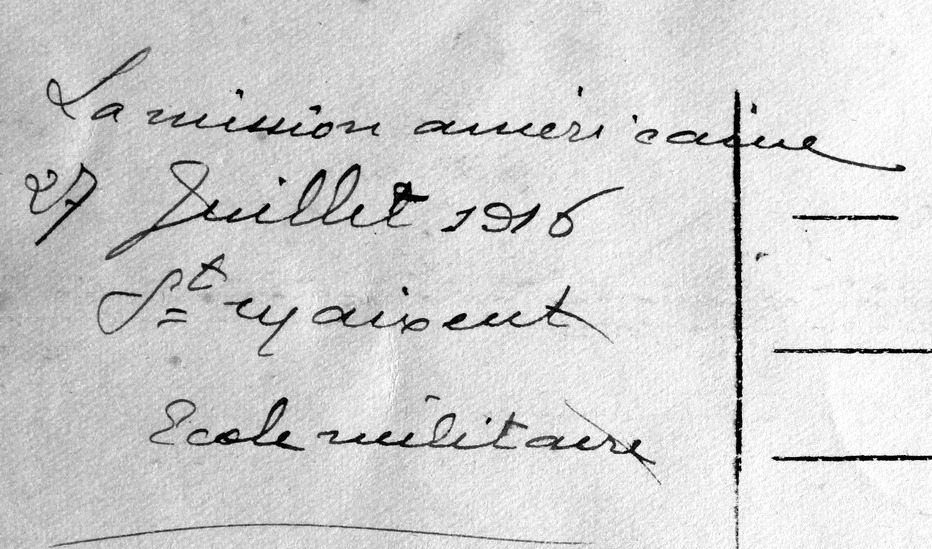 La mission américaine
27 Juillet 1916
St Maixent
Ecole militaire